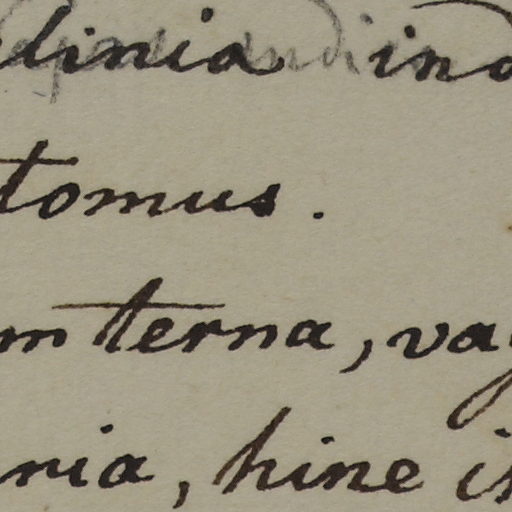 linia ind
tomus.
m terna, vag
ria, hine is